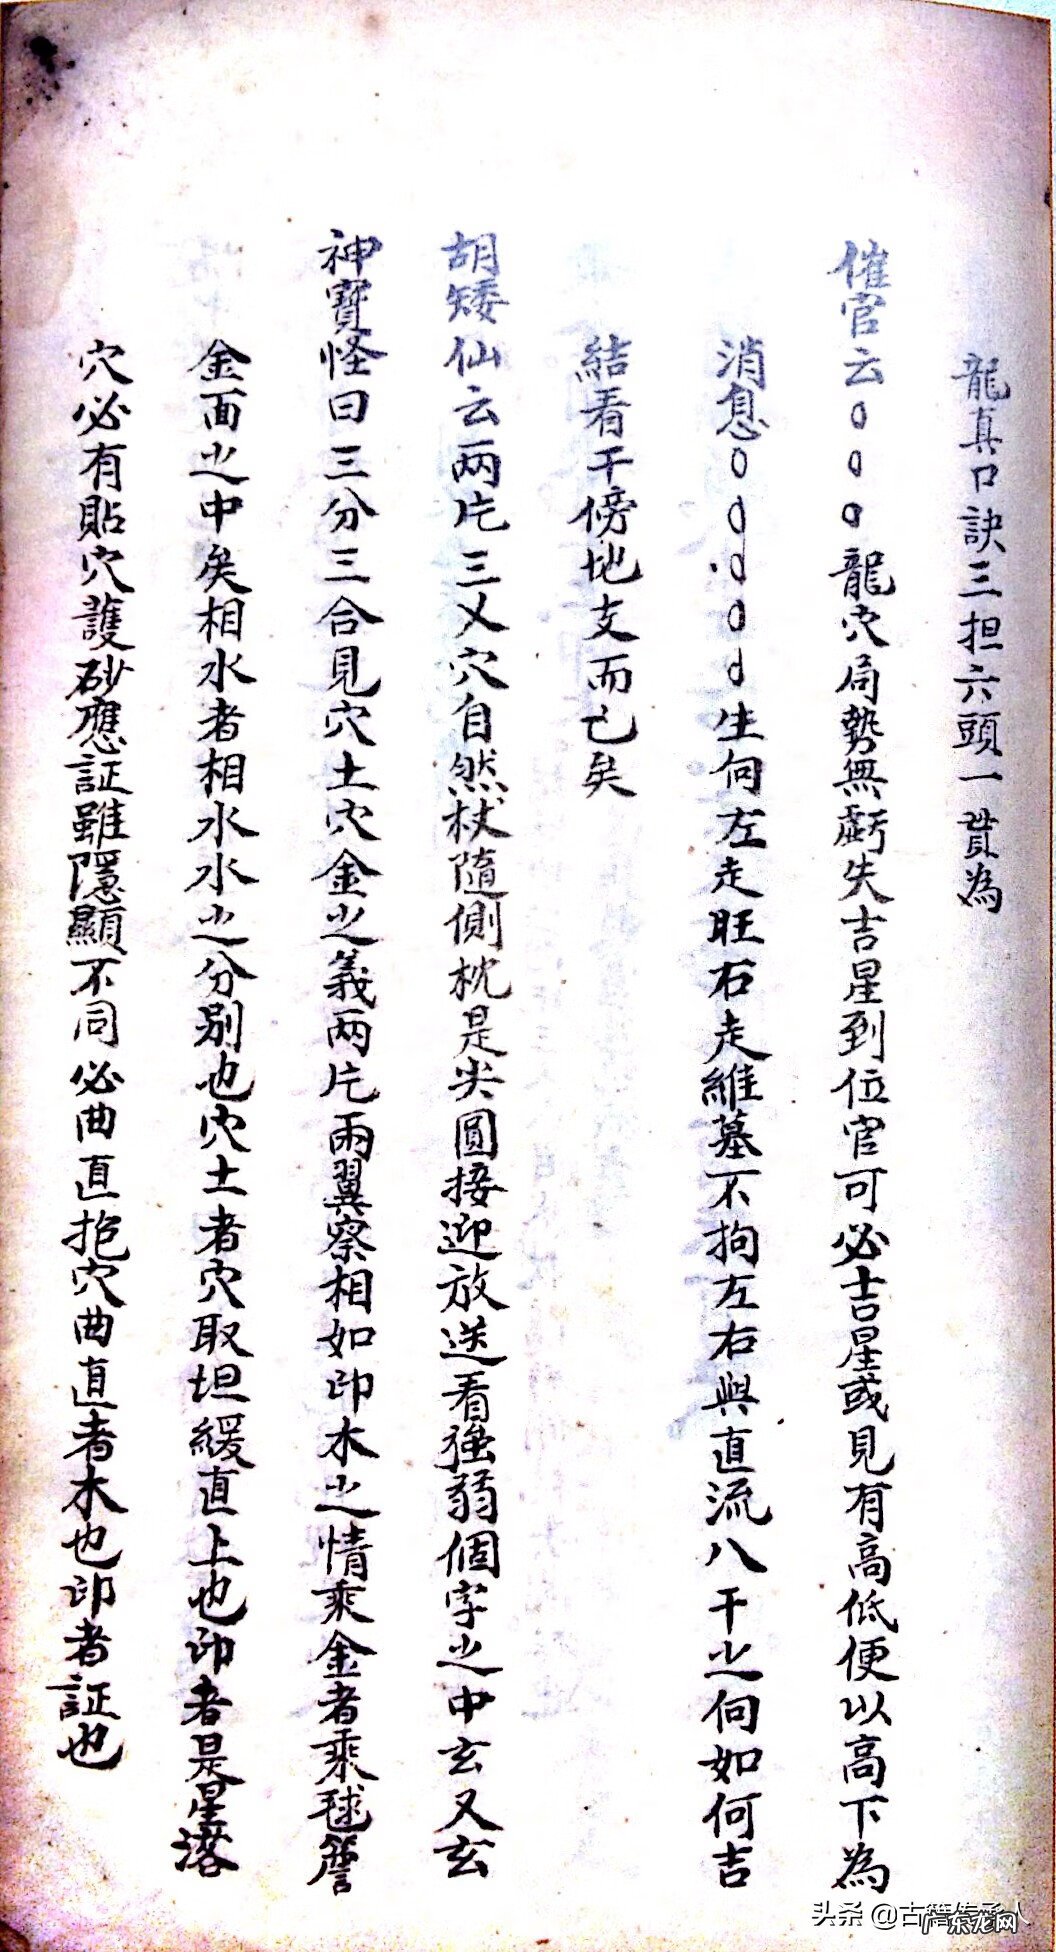 龍真口訣三担六頭一貫為
催官云○○○龍穴局勢無虧失吉星到位官可必吉星或見有高低便以高下為
消息○○○○○生向左走旺右走維墓不拘左右與直流八干之向如何吉
結看干傍地支而已矣
胡矮仙云兩片三乂穴自然杖隨側枕是尖圓接迎放送看強弱個字之中玄又玄
神寶怪曰三分三合見穴土穴金之義兩片兩翼察相如印木之情乘金者乘毬簷
金面之中矣相水者相水水之分別也穴土者穴取坦緩直上也印者是星落
穴必有貼穴護砂應証雖隱顯不同必曲直抱穴曲直者木也印者証也
头条 @古籍传承人
广东龙网